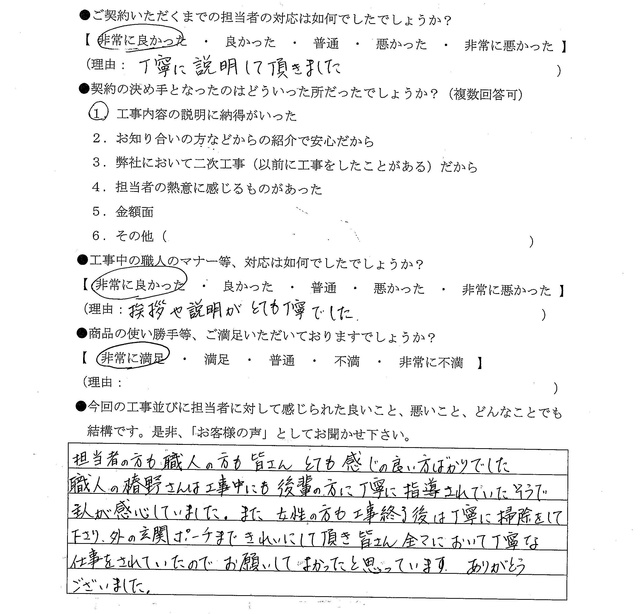 ●ご契約いただくまでの担当者の対応は如何でしたでしょうか？
【 非常に良かった ・ 良かった ・ 普通 ・ 悪かった ・ 非常に悪かった 】
（理由： 丁寧に説明して頂きました ）
●契約の決め手となったのはどういった所だったでしょうか？（複数回答可）
１．工事内容の説明に納得がいった
２．お知り合いの方などからの紹介で安心だから
３．弊社において二次工事（以前に工事をしたことがある）だから
４．担当者の熱意に感じるものがあった
５．金額面
６．その他（ ）
●工事中の職人のマナー等、対応は如何でしたでしょうか？
【 非常に良かった ・ 良かった ・ 普通 ・ 悪かった ・ 非常に悪かった 】
（理由： 挨拶や説明がとても丁寧でした. ）
●商品の使い勝手等、ご満足いただいておりますでしょうか？
【 非常に満足 ・ 満足 ・ 普通 ・ 不満 ・ 非常に不満 】
（理由： ）
●今回の工事並びに担当者に対して感じられた良いこと、悪いこと、どんなことでも
結構です。是非、「お客様の声」としてお聞かせ下さい。
担当者の方も職人の方も皆さん とても感じの良い方ばかりでした
職人の椿野さんは工事中にも後輩の方に丁寧に指導されていたそうで
主人が感心していました。また 女性の方も工事終る後は丁寧に掃除をして
下さり、外の玄関ポーチまできれいにして頂き皆さん全てにおいて丁寧な
仕事をされていたので お願いしてよかったと思っています ありがとう
ございました。